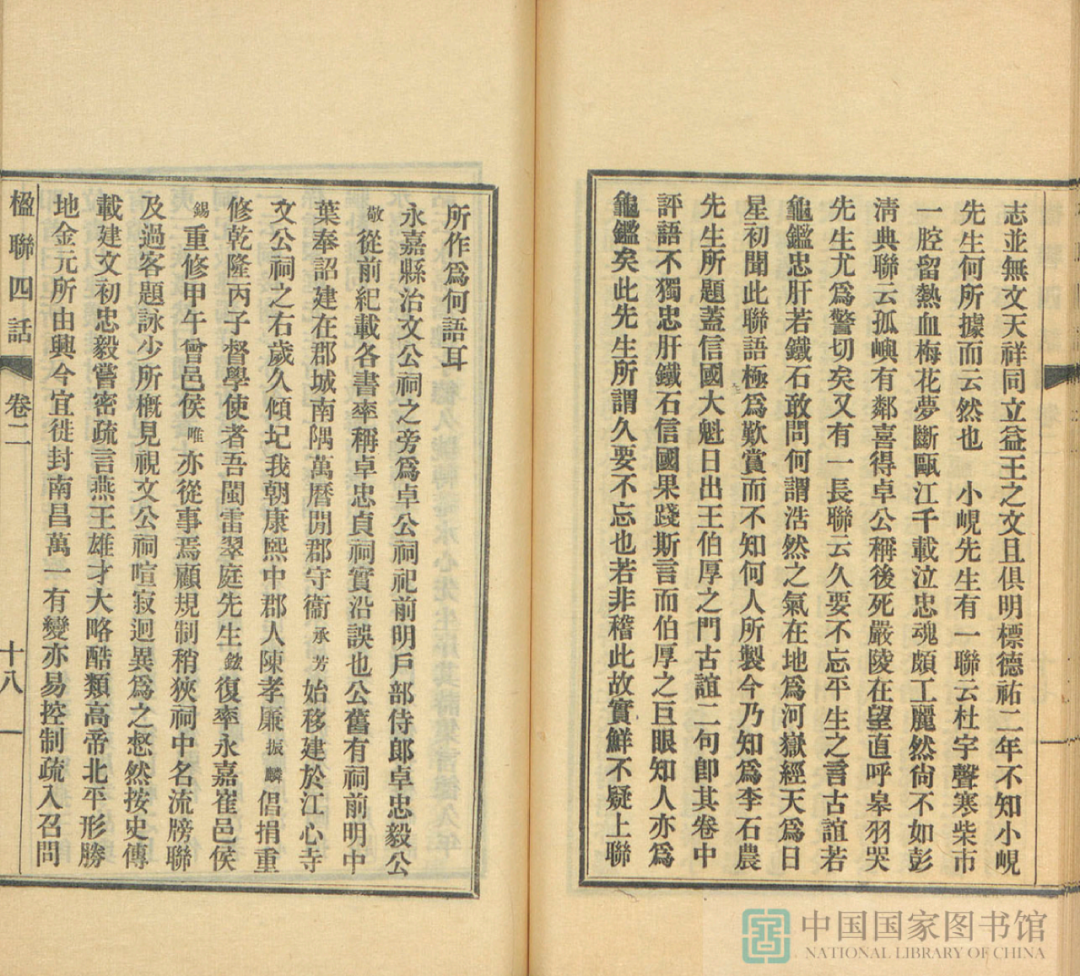 志並無文天祥同立益王之文且俱明標德祐二年不知小峴
先生何所據而云然也　小峴先生有一聯云杜宇聲寒柴市
一腔留熱血梅花夢斷甌江千載泣忠魂頗工麗然尙不如彭
清典聯云孤嶼有鄰喜得卓公稱後死嚴陵在望直呼皋羽哭
先生尤爲警切矣又有一長聯云久要不忘平生之言古誼若
龜鑑忠肝若鐵石敢問何謂浩然之氣在地爲河嶽經天爲日
星初聞此聯語極爲歎賞而不知何人所製今乃知爲李石農
先生所題蓋信國大魁日出王伯厚之門古誼二句卽其卷中
評語不獨忠肝鐵石信國果踐斯言而伯厚之巨眼知人亦爲
龜鑑矣此先生所謂久要不忘也若非稽此故實鮮不疑上聯
所作爲何語耳
永嘉縣治文公祠之旁爲卓公祠祀前明戶部侍郎卓忠毅公
敬從前紀載各書率稱卓忠貞祠實沿誤也公舊有祠前明中
葉奉詔建在郡城南隅萬曆閒郡守衞承芳始移建於江心寺
文公祠之右歲久傾圮我朝康熙中郡人陳孝廉振麟倡捐重
修乾隆丙子督學使者吾閩雷翠庭先生鋐復率永嘉崔邑侯
錫重修甲午曾邑侯唯亦從事焉顧規制稍狹祠中名流牓聯
及過客題詠少所概見視文公祠喧寂迥異爲之愸然按史傳
載建文初忠毅嘗密疏言燕王雄才大略酷類高帝北平形勝
地金元所由興今宜徙封南昌萬一有變亦易控制疏入召問
楹聯四話　卷二　十八
中国国家图书馆
NATIONAL LIBRARY OF CHINA